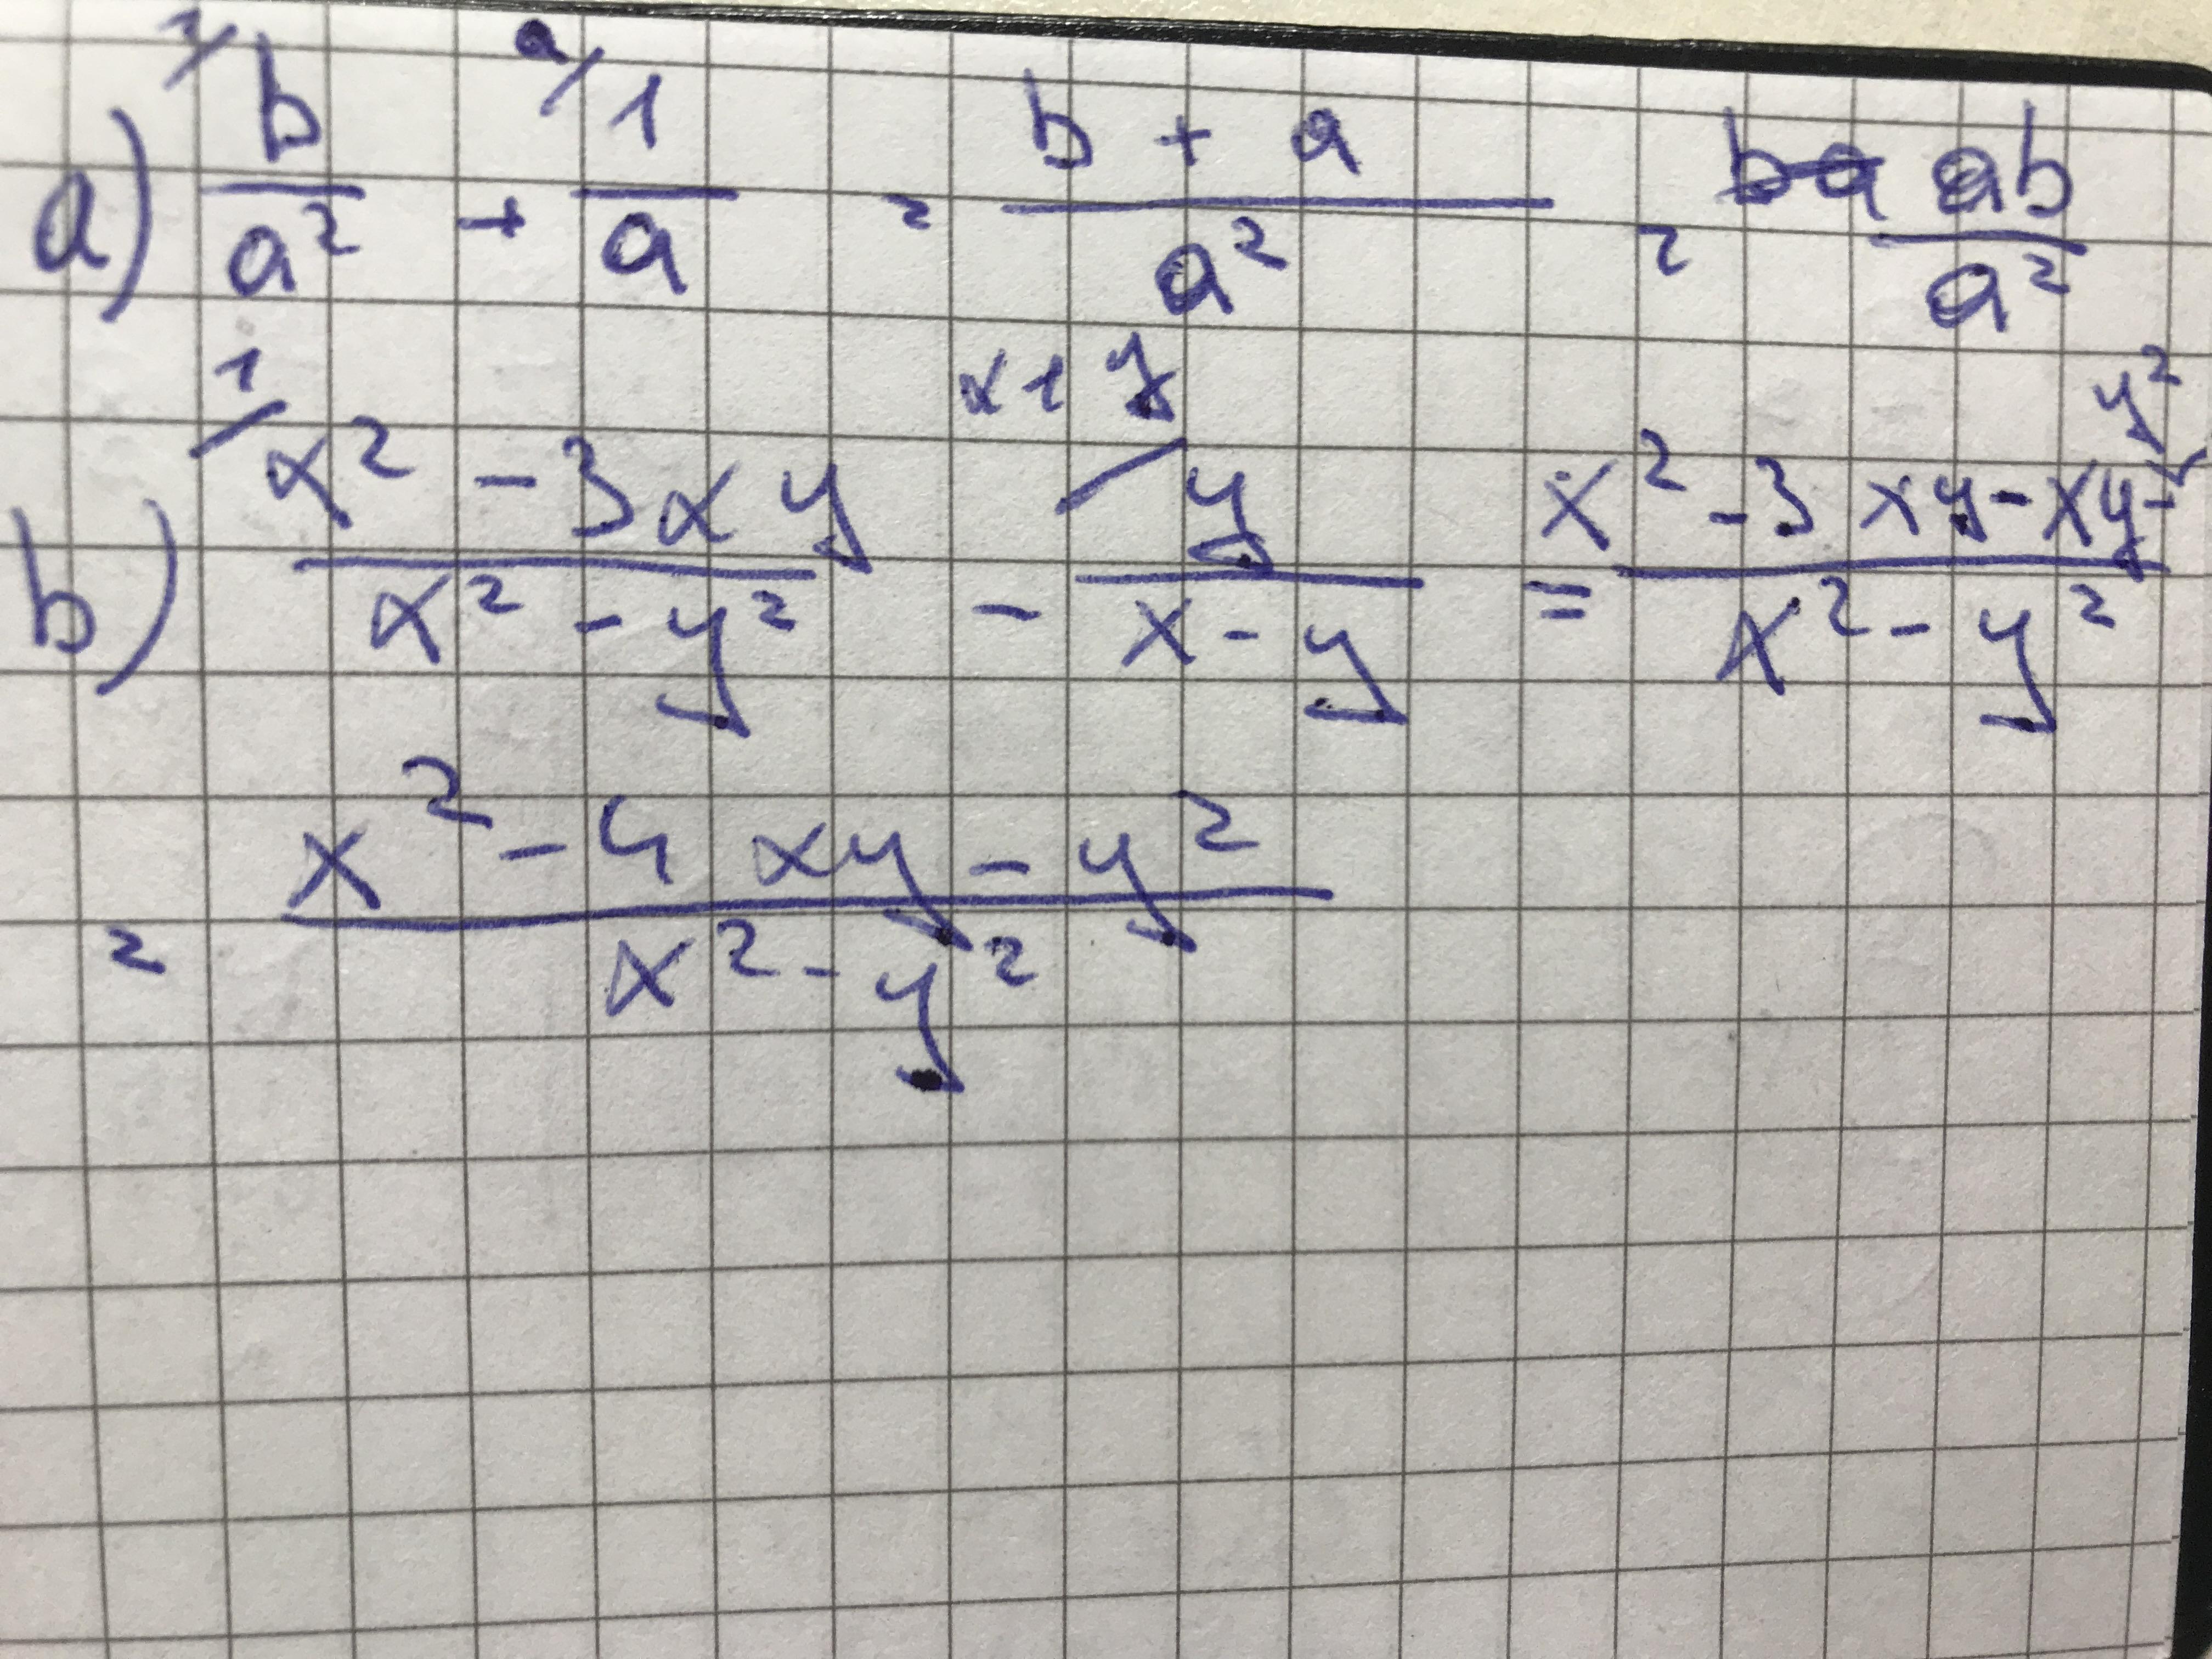 a) 1/ b/a² + a/ 1/a = b + a/a² = ba ab/a²
b) 1/ x² - 3xy/x² - y² - x+y/ y/x - y = x² - 3xy - xy - y²/x² - y²
= x² - 4xy - y²/x² - y²